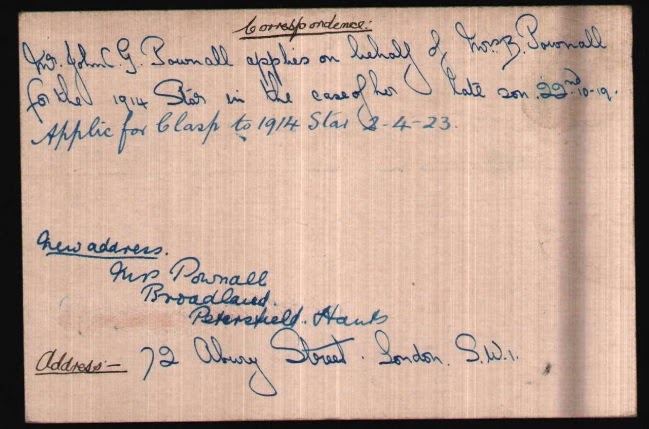 Correspondence:-
Mr. John C. G. Pownall applies on behalf of Mrs B. Pownall
for the 1914 Star in the case of her late son. 22nd-10-19.
Applic for Clasp to 1914 Star 2-4-23.
New address.
Mrs Pownall
Broadland.
Petersfield. Hants
Address:- 72 Street. London. S.W.1.